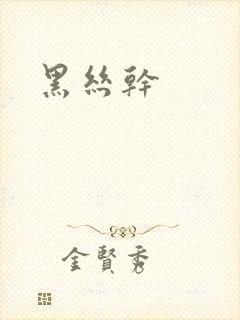 黑絲幹
金賢秀